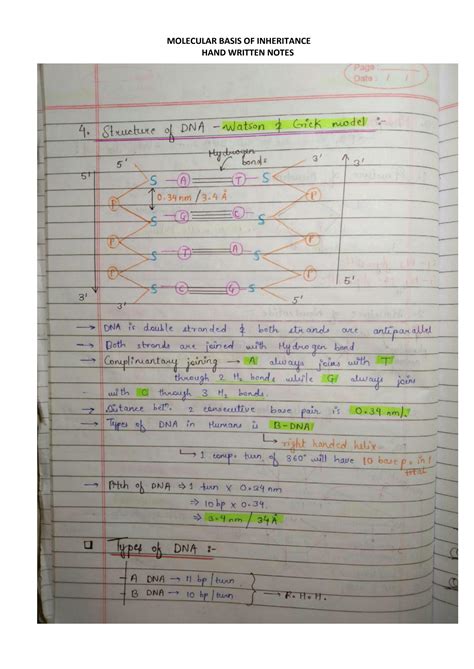 MOLECULAR BASIS OF INHERITANCE
HAND WRITTEN NOTES
Page :
Date : / /
4. Structure of DNA - Watson & Crick model :-
Hydrogen bonds
5' 3'
5' 3'
S A T S
P 0.34nm / 3.4 Å P
S G C S
P P
S T A S
P P
S C G S
3' 5'
3' 5'
→ DNA is double stranded & both strands are antiparallel
→ Both strands are joined with Hydrogen bond
→ Complimantary joining → A always joins with T
through 2 H₂ bonds while G always joins
with C through 3 H₂ bonds.
→ Distance betⁿ. 2 consecutive base pair is 0.34 nm/.
→ Types of DNA in Humans is B-DNA
→ right handed helix
→ 1 comp. turn of 360° will have 10 base p. in 1
→ Pitch of DNA ⇒ 1 turn X 0.34nm
⇒ 10 bp x 0.34
⇒ 3.4 nm / 34Å
Types of DNA :-
A DNA → 11 bp/turn
B DNA → 10 bp/turn → R.H.H.